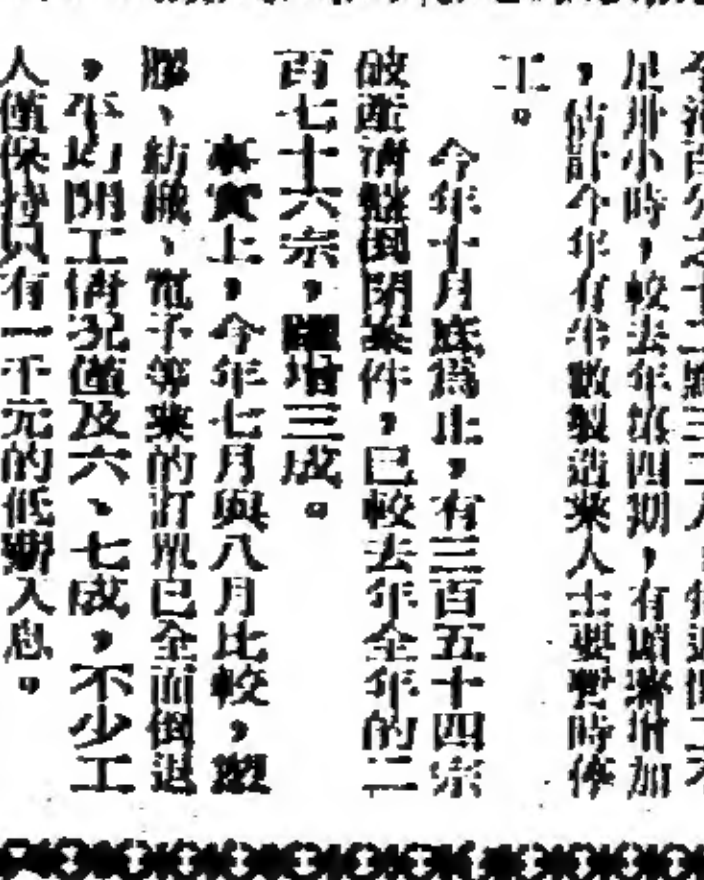 足卅小時,較去年第四期,有明顯增加
,估計今年有半數製造業人士要暫時停
工。
今年十月底為止,有三百五十四宗
破產清盤倒閉案件,已較去年全年的二
百七十六宗,驟增三成。
事實上,今年七月與八月比較,塑
膠、紡織、電子等業的訂單已全面倒退
,平均開工情況僅及六、七成,不少工
人僅保持只有一千元的低薪入息。